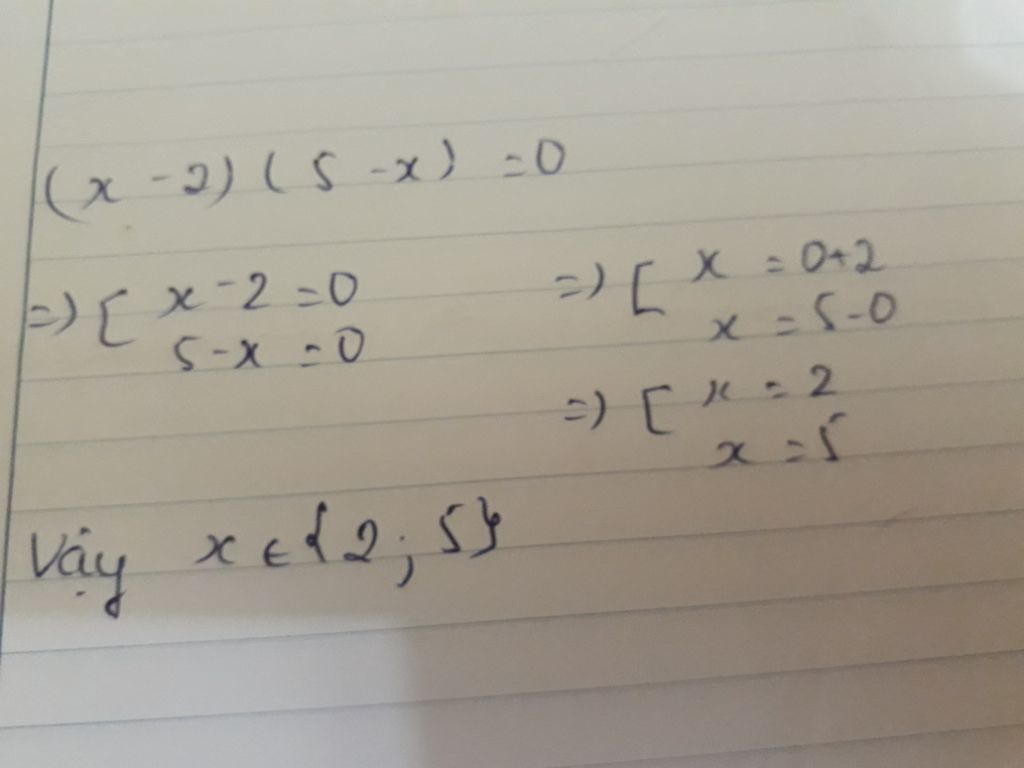 (x - 2) ( 5 - x) = 0
=) [ x - 2 = 0 =) [ x = 0+2
5 - x = 0 x = 5 - 0
=) [ x = 2
x = 5
Vậy x ϵ {2 ; 5}